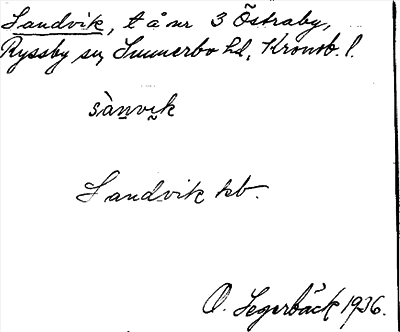 Sandvik, t å nr 3 Östraby,
Ryssby sn, Sunnerbo hd, Kronob. l.
sànvik
Sandvik kb.
O. Segerbäck 1936.